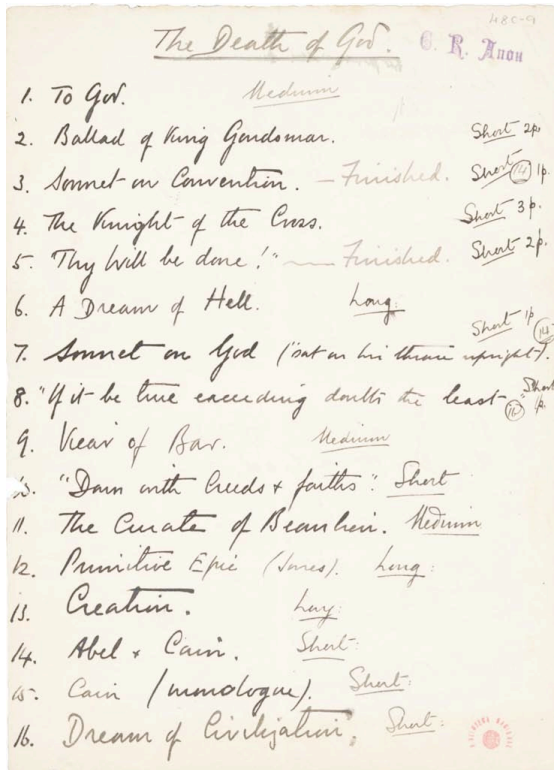 480-9
The Death of God.
C. R. Anon
1. To God. Medium
2. Ballad of King Gondomar. Short 2p.
3. Sonnet on Convention. — Finished. Short 14 1p.
4. The Knight of the Cross. Short 3p.
5. "Thy Will be done!" — Finished. Short 2p.
6. A Dream of Hell. Long:
Short 1p 14
7. Sonnet on God ("sat on his throne upright").
8. "If it be true exceeding doubts the least" Short 14 1p.
9. Vicar of Bar. Medium
10. "Damn with Creeds & faiths". Short
11. The Curate of Beaulieu. Medium
12. Primitive Epic (Jones). Long:
13. Creation. Long:
14. Abel & Cain. Short:
15. Cain (monologue). Short:
16. Dream of Civilization. Short: